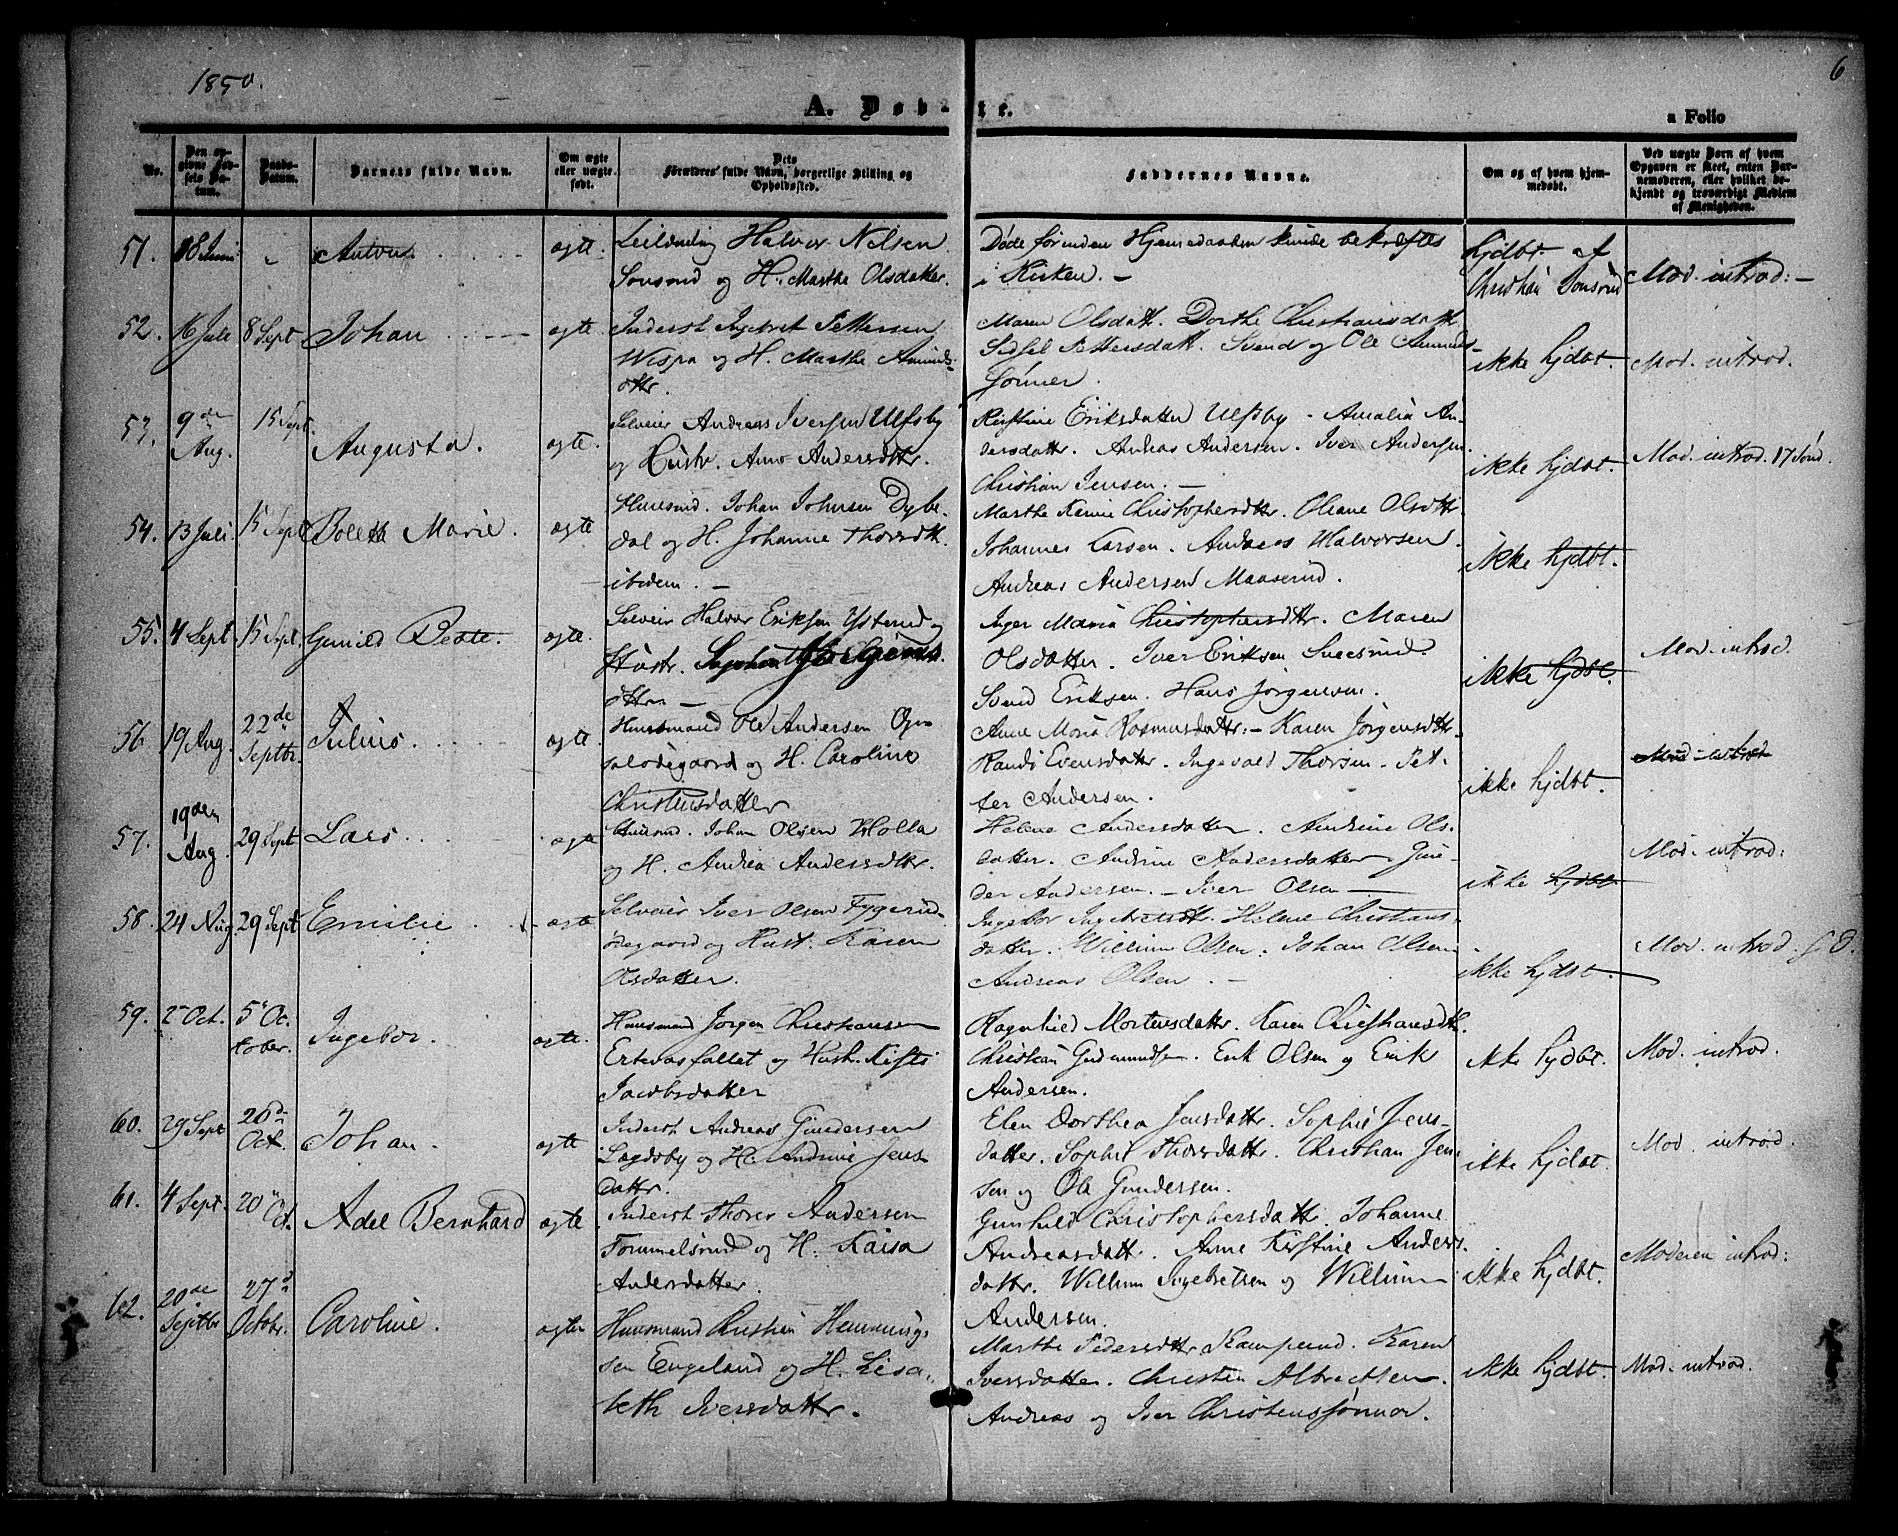 1850.
6
A. Døbte.
a Folio
No.
Den opgivne Fødsels Datum.
Daabs-Datum.
Barnets fulde Navn.
Om ægte eller uægte født.
Dets Forældres fulde Navn, borgerlige Stilling og Opholdssted.
Faddernes Navne.
Om og af hvem hjemmedøbt.
Ved uægte Børn af hvem Opgaven er skeet, enten Barnemoderen, eller hvilket bekjendt og troværdigt Medlem af Menigheden.
51. 18 Juni „ ægte. Halvor Nilsen
og H. Marthe Olsdatter.
Døde førinden Hjemedaaben kunde bekræftes
i Kirken. —
hjdbt. af
Christian
Mod. introd: —
52. 16 Juli 8 Sept Johan ægte. Inderst Ingebret Pettersen
Wispa og H. Marthe Amunds-
dttr.
Maren Olsdatt. Dorthe Christiansdatt.
Sidsel Pettersdatt. Svend og Ole Amund-
sønner.
ikke hjdbt.
Mod. introd.
53. 9de Aug. 15 Sept. Augusta. ægte. Selveier Andreas Iversen Ulfsby
og Hustr. Anne Andersdttr.
Kirstine Eriksdatter Ulfsby. Amalia An-
dersdatt. Andreas Andersen. Iver Andersen
Christian Jensen. —
ikke hjdbt.
Mod. introd. 17 Sønd.
54. 13 Juli 15 Sept Boletta Marie. ægte Huusmd. Johan Johnsen Dybe-
dal og H. Johanne Thorsdtt.
ibidem. —
Marthe Karine Christophersdttr. Oleane Olsdttr
Johannes Larsen. Andreas Halvorsen.
Andreas Andersen Maaserud.
ikke hjdbt.
55. 4 Sept. 15 Sept. Gunild Beate. ægte. Selveir Halvor Eriksen Ysterud og
Hustr.
dttr. —
Inger Maria Christophersdttr. Maren
Olsdatter. Iver Eriksen
Svend Eriksen. Hans Jørgensen.
ikke hjdbt.
Mod. introd.
56 19 Aug. 22de Septbr. Julius. ægte. Huusmand Ole Andersen
og H. Caroline
Christensdatter
Anne Maria Rasmusdattr. — Karen Jörgensdttr.
Randi Evensdattr. Ingevald Thorsen. Pet-
ter Andersen.
ikke hjdbt.
Mod. introd
57. 19den Aug. 29 Sept Lars. ægte Huusmd. Johan Olsen Holla
og H. Andrea Andersdttr.
Helene Andersdatter. Andrine Ols-
datter. Andrine Andersdatter. Gun-
der Andersen. — Iver Olsen —
ikke hjdbt.
Mod. introd:
58. 24 Aug. 29 Sept Emilie ægte Selveier Iver Olsen Fygerud-
ödegaard og Hust. Karen
Olsdatter.
Ingebor Ingebretsdttr. Helene Christians-
datter. Willium Olsen. Johan Olsen
Andreas Olsen. —
ikke hjdbt.
Mod. introd.
59. 2 Oct. 5 Oc-
tober. Ingebor. ægte. Huusmand Jørgen Christiansen
Ertevasfallet og Hust. Kisti
Jacobsdatter
Ragnhild Mortensdattr. Karen Christiansdtt.
Christian Gudmundsen. Erik Olsen og Erik
Andersen.
ikke hjdbt.
Mod. introd.
60. 29 Sept 20de Oct. Johan. ægte Inderst Andreas Gundersen
Lagdsby og H. Andrine Jens-
dattr.
Elen Dorthea Jensdattr. Sophie Jens-
datter. Sophie Thorsdattr. Christian Jen-
sen og Ole Gundersen.
ikke hjdbt.
Mod. introd.
61. 4 Sept. 20 Oct. Adel Bernhard ægte Inderst Thorer Andersen
Tommelsrud og H. Kaisa
Andersdatter.
Gunhild Christophersdattr. Johanne
Andreasdatt. Anne Kirstine Anders-
dattr. Willium Ingebretsen og Willium
Andersen.
ikke hjdbt.
Moderen introd:
62. 20de Septbr 27de Octobr. Caroline. ægte Huusmand Christian Henning-
sen Engeland og H. Lisa-
beth Iversdattr.
Marthe Pedersdttr Kamperud. Karen
Iversdatter. Christen Albrechtsen.
Andreas og Iver Christenssønner.
ikke hjdbt.
Mod. introd.